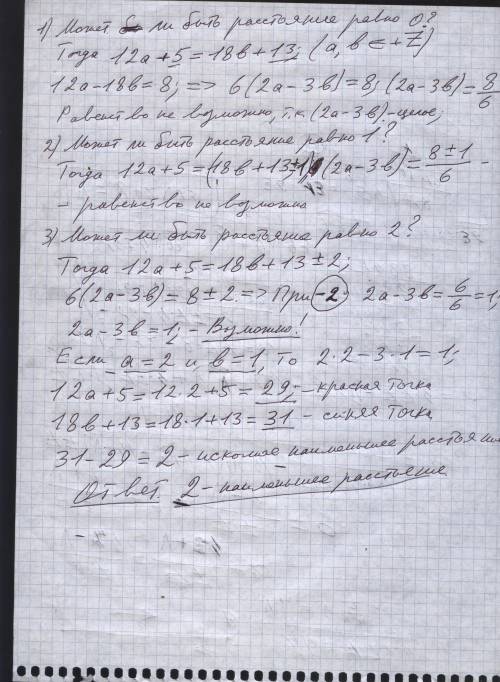 1) Может ли быть расстояние равно 0?
Тогда 12а + 5 = 18в + 13; (а, в ∈ +Z)
12а - 18в = 8; => 6(2а - 3в) = 8; (2а - 3в) = 8/6
Равенство не возможно, т.к. (2а - 3в) - целое;
2) Может ли быть расстояние равно 1?
Тогда 12а + 5 = (18в + 13 ± 1); (2а - 3в) = 8±1/6 -
- равенство не возможно
3) Может ли быть расстояние равно 2?
Тогда 12а + 5 = 18в + 13 ± 2;
6(2а - 3в) = 8 ± 2 => При -2 2а - 3в = 6/6 = 1;
2а - 3в = 1; - Возможно!
Если а = 2 и в = 1, то 2·2 - 3·1 = 1;
12а + 5 = 12·2 + 5 = 29; - красная точка
18в + 13 = 18·1 + 13 = 31 - синяя точка
31 - 29 = 2 - искомое наименьшее расстояние
Ответ 2 - наименьшее расстояние